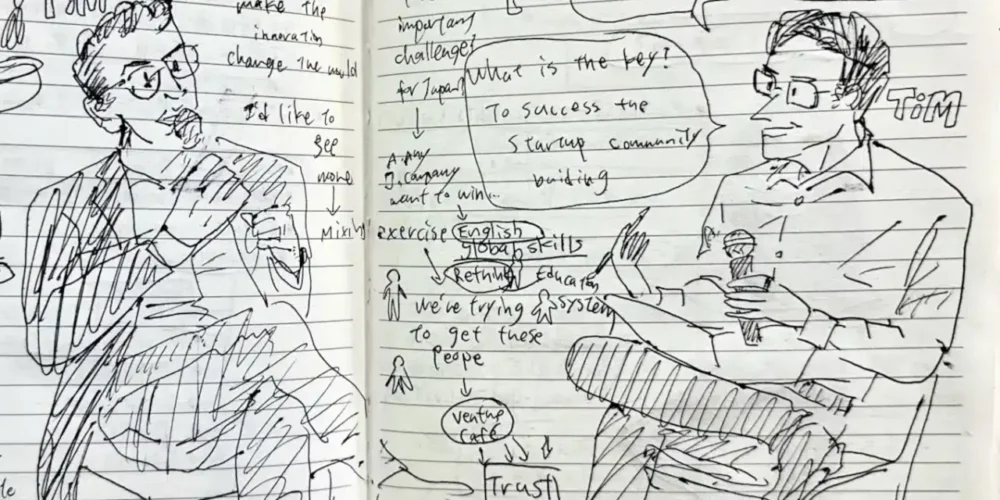 make the
innovatin
change the world
I'd like to
see
more
Mixing
important
challenge?
for Japan
A. Any
J. Company
want to win..
exercise English
global skills
Rethink Education
system
we've trying
to get these
Peope
Venture
Café
Trust
What is the key?
To success the
Startup community
buiding
TiM